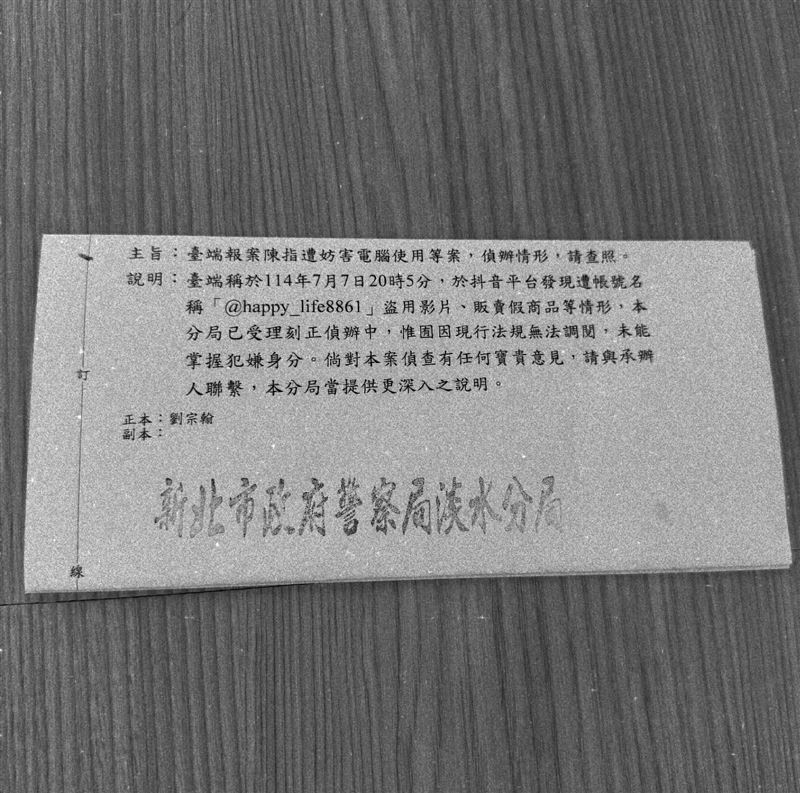 主旨：臺端報案陳指遭妨害電腦使用等案，偵辦情形，請查照。
說明：臺端稱於114年7月7日20時5分，於抖音平台發現遭帳號名
稱「@happy_life8861」盜用影片、販賣假商品等情形，本
分局已受理刻正偵辦中，惟囿因現行法規無法調閱，未能
掌握犯嫌身分。倘對本案偵查有任何寶貴意見，請與承辦
人聯繫，本分局當提供更深入之說明。
正本：劉宗翰
副本：
新北市政府警察局淡水分局
訂
線